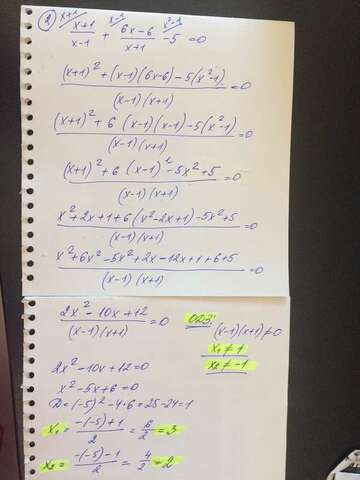 2) (x+1)/(x-1) + (6x-6)/(x+1) - 5 = 0
x+1 x-1 x²-1
((x+1)² + (x-1)(6x-6) - 5(x²-1))/((x-1)(x+1)) = 0
((x+1)² + 6(x-1)(x-1) - 5(x²-1))/((x-1)(x+1)) = 0
((x+1)² + 6(x-1)² - 5x² + 5)/((x-1)(x+1)) = 0
(x² + 2x + 1 + 6(x² - 2x + 1) - 5x² + 5)/((x-1)(x+1)) = 0
(x² + 6x² - 5x² + 2x - 12x + 1 + 6 + 5)/((x-1)(x+1)) = 0
(2x² - 10x + 12)/((x-1)(x+1)) = 0
ОДЗ:
(x-1)(x+1) ≠ 0
x₁ ≠ 1
x₂ ≠ -1
2x² - 10x + 12 = 0
x² - 5x + 6 = 0
D = (-5)² - 4·6 = 25 - 24 = 1
x₁ = (-(-5)+1)/2 = 6/2 = 3
x₂ = (-(-5)-1)/2 = 4/2 = 2